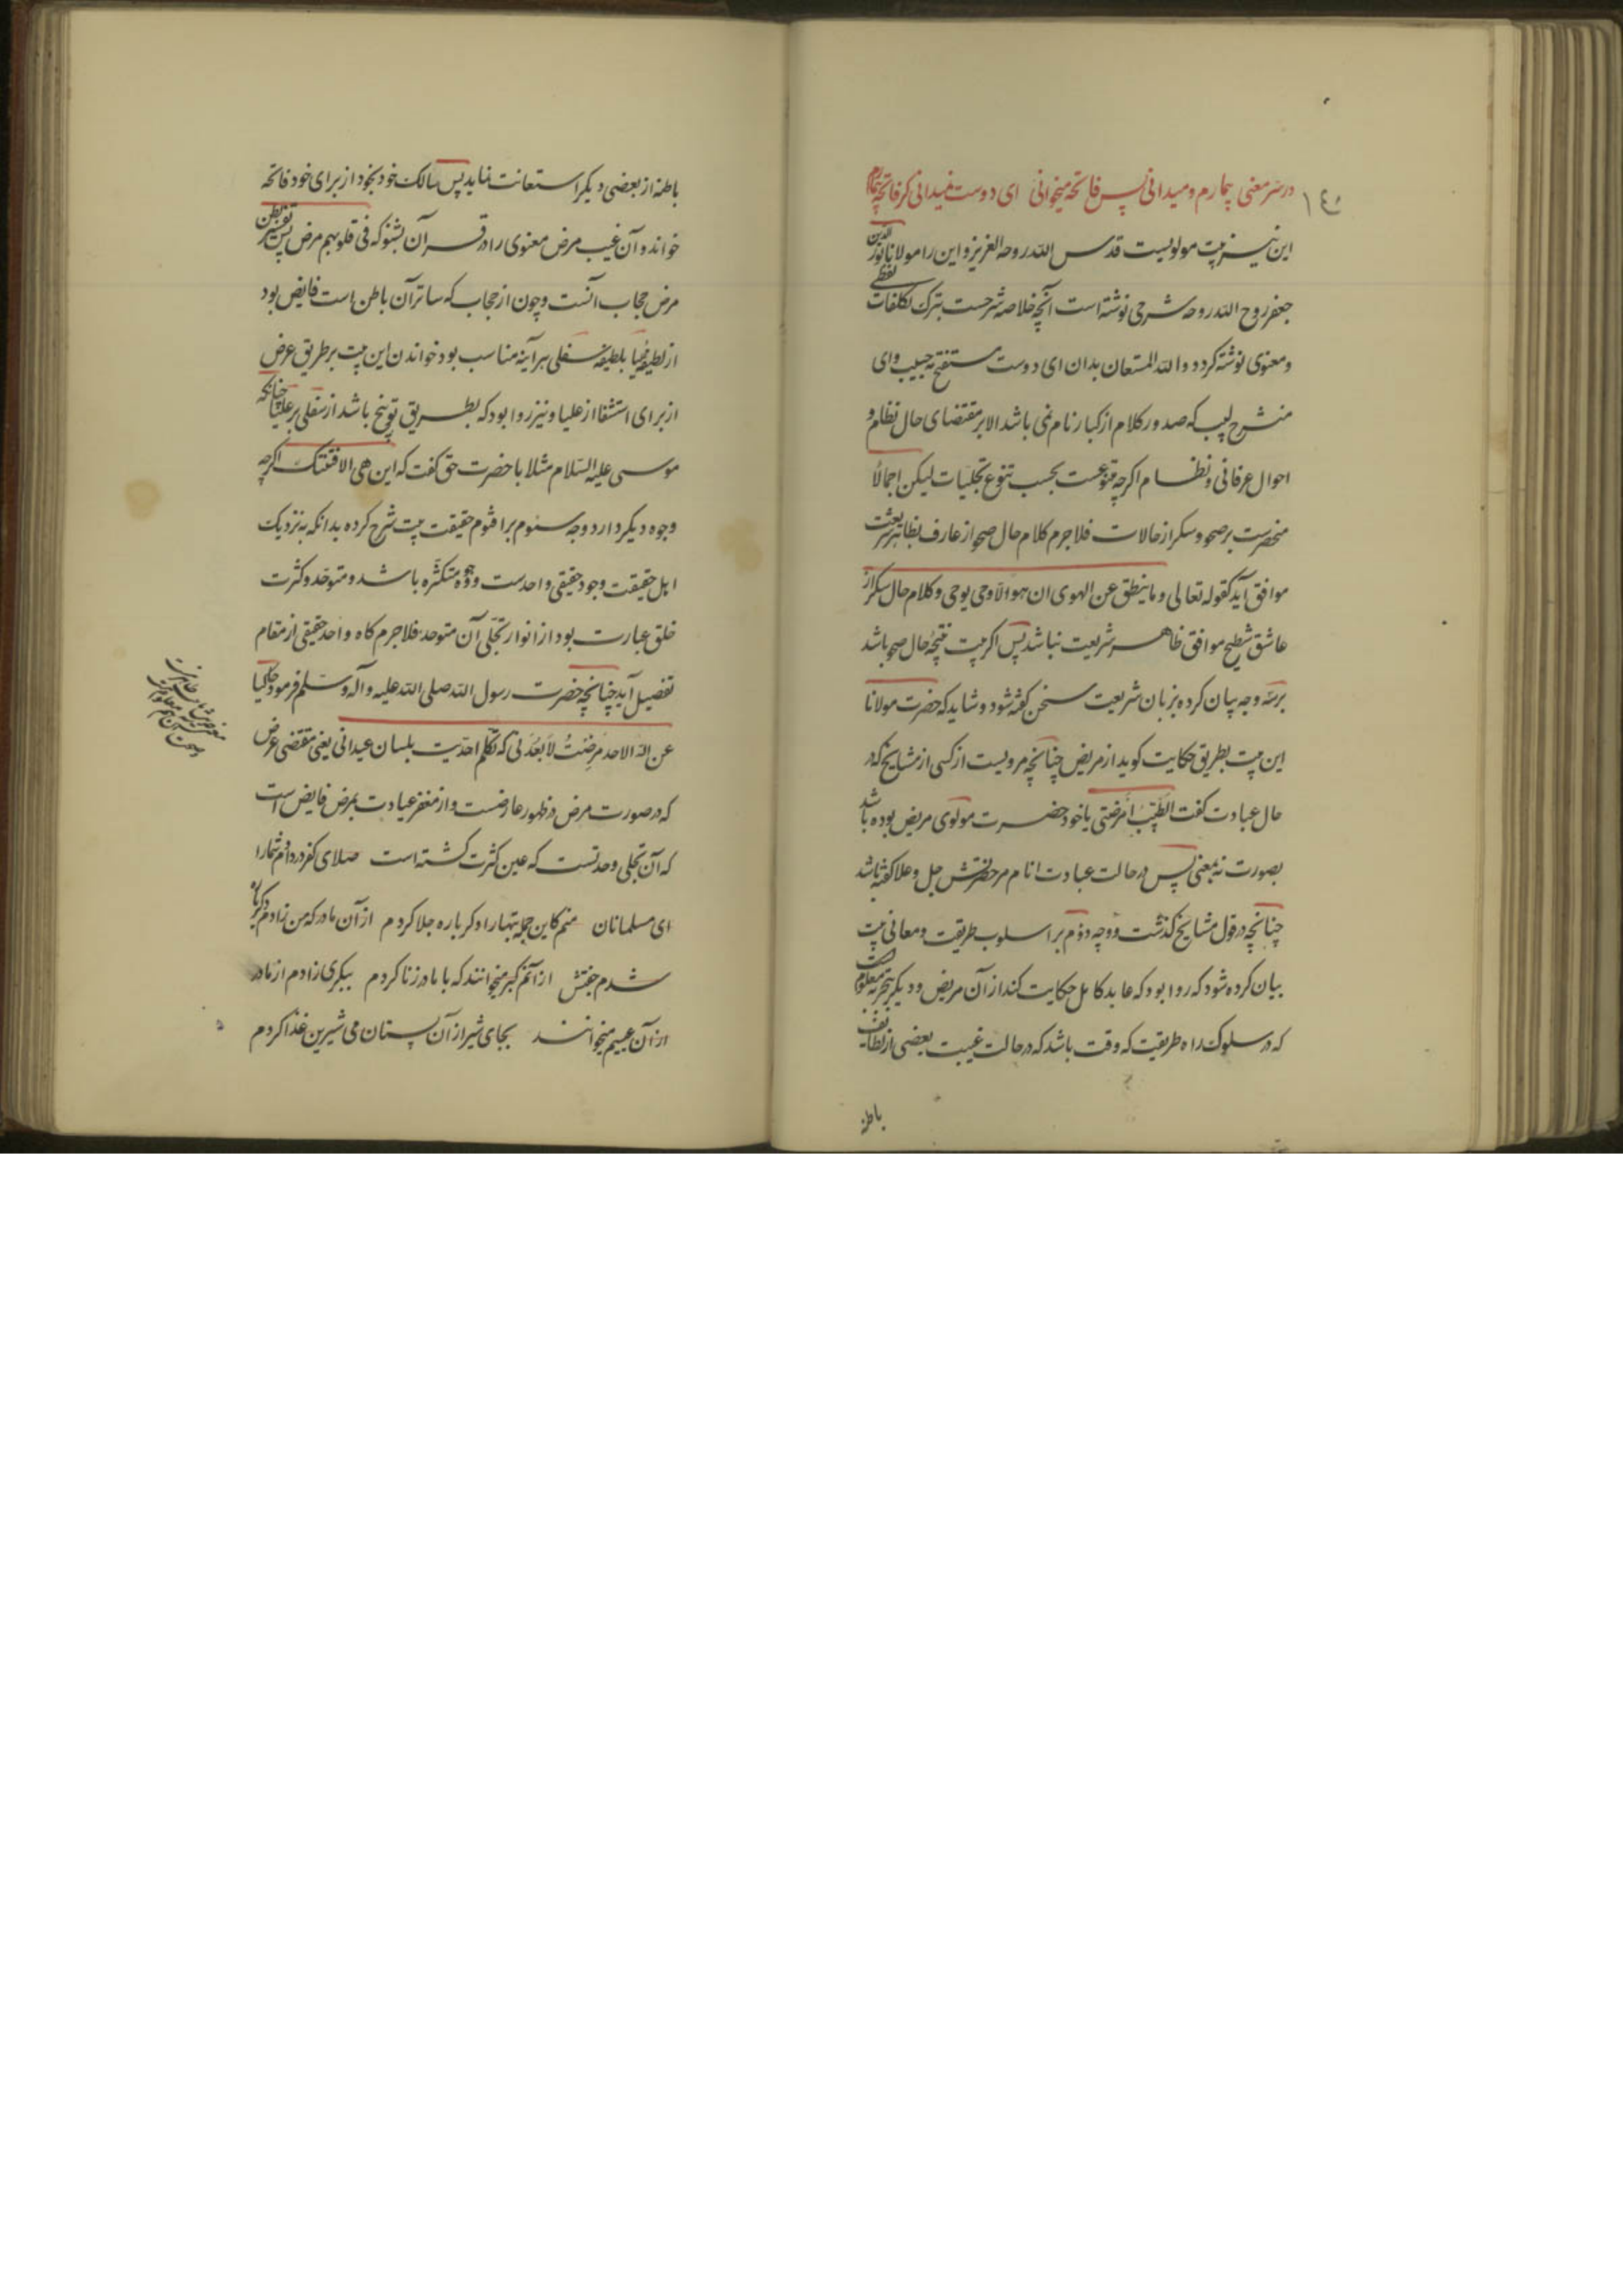 ١٤٠
در سر معنی بیمارم و میدانی پس فاتحه میخوانی ای دوست نمیدانی کز فاتحه بیمارم
این نیز بیت مولویست قدس الله روحه العزیز و این را مولانا نور الدین
جعفر روح الله روحه شرحی نوشته است آنچه خلاصه شرحست بترک تکلفات لفظی
و معنوی نوشته گردد و الله المستعان بدان ای دوست مستفتح حبیب و ای
منشرح لبیب که صدور کلام از کبار نام نمی باشد الا بر مقتضای حال نظام و
احوال عرفانی و نظام اگرچه متنوعست بحسب تنوع تجلیات لیکن اجمالا
منحصرست بر صحو و سکر از حالات فلاجرم کلام حال صحو از عارف بظاهر شریعت
موافق آید کقوله تعالی و ما ینطق عن الهوی ان هو الا وحی یوحی و کلام حال سکر از
عاشق شطح موافق ظاهر شریعت نباشد پس اگر بیت نتیجه حال صحو باشد
بر سه وجه بیان کرده بزبان شریعت سخن گفته شود و شاید که حضرت مولانا
این بیت بطریق حکایت گوید از مریض چنانچه مرویست از کسی از مشایخ که در
حال عیادت گفت الطبیب امرضنی یا خود حضرت مولوی مریض بوده باشد
بصورت نه بمعنی پس در حالت عیادت انام مر حضرتش جل و علا گفته باشد
چنانچه در قول مشایخ گذشت و وجه دوم بر اسلوب طریقت و معانی بیت
بیان کرده شود که روا بود که عابد کامل حکایت کند از آن مریض و دیگر بتجربه معلوم است
که در سلوک راه طریقت که وقت باشد که در حالت غیبت بعضی از لطایف
باطنه
باطنه از بعضی دیگر استعانت نماید پس سالک خود بخود از برای خود فاتحه
خواند و آن غیب مرض معنوی را در قرآن بشنو که فی قلوبهم مرض پس تفسیر بطن
مرض حجاب آنست و چون از حجاب که ساتر آن باطن است فایض بود
از لطیفه علیا بلطیفه سفلی هر آینه مناسب بود خواندن این بیت بر طریق عرض
از برای استشفا از علیا و نیز روا بود که بطریق توبیخ باشد از سفلی بر علیا چنانکه
موسی علیه السلام مثلا با حضرت حق گفت که ان هی الا فتنتک اگرچه
وجوه دیگر دارد وجه سوم بر اقنوم حقیقت بیت شرح کرده بدانکه به نزدیک
اهل حقیقت وجود حقیقی واحدست و وجوه متکثره باشد و متوحد و کثرت
خلق عبارت بود از انوار تجلی آن متوحد فلاجرم گاه واحد حقیقی از مقام
تفصیل آید چنانچه حضرت رسول الله صلی الله علیه و آله و سلم فرمود حاکیا
عن اله الاحد مرضت لا بعدنی که تکلم احدیت بلسان عبدانی یعنی مقتضی عرض
که در صورت مرض در ظهور عارضست و از مغفر عیادت بمرض فایض است
که آن تجلی وحدتست که عین کثرت گشته است صلای کفر در دادم شما را
ای مسلمانان منم کاین جمله بتها را دگر باره جلا کردم از آن مادر که من زادم دگر باره
شدم جفتش از آنم گبر میخوانند که با مادر زنا کردم ببکری زادم از مادر
از آن عیسیم میخوانند بجای شیر از آن پستان می شیرین غذا کردم